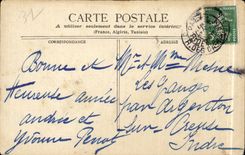 CARTE POSTALE
A utiliser seulement dans le service intérieur
(France, Algérie, Tunisie)
CORRESPONDANCE
ADRESSE
Bonne et
Heureuse année
andré et
Yvonne
Mr et Mme
les
par Argenton
Sur Creuse
Indre